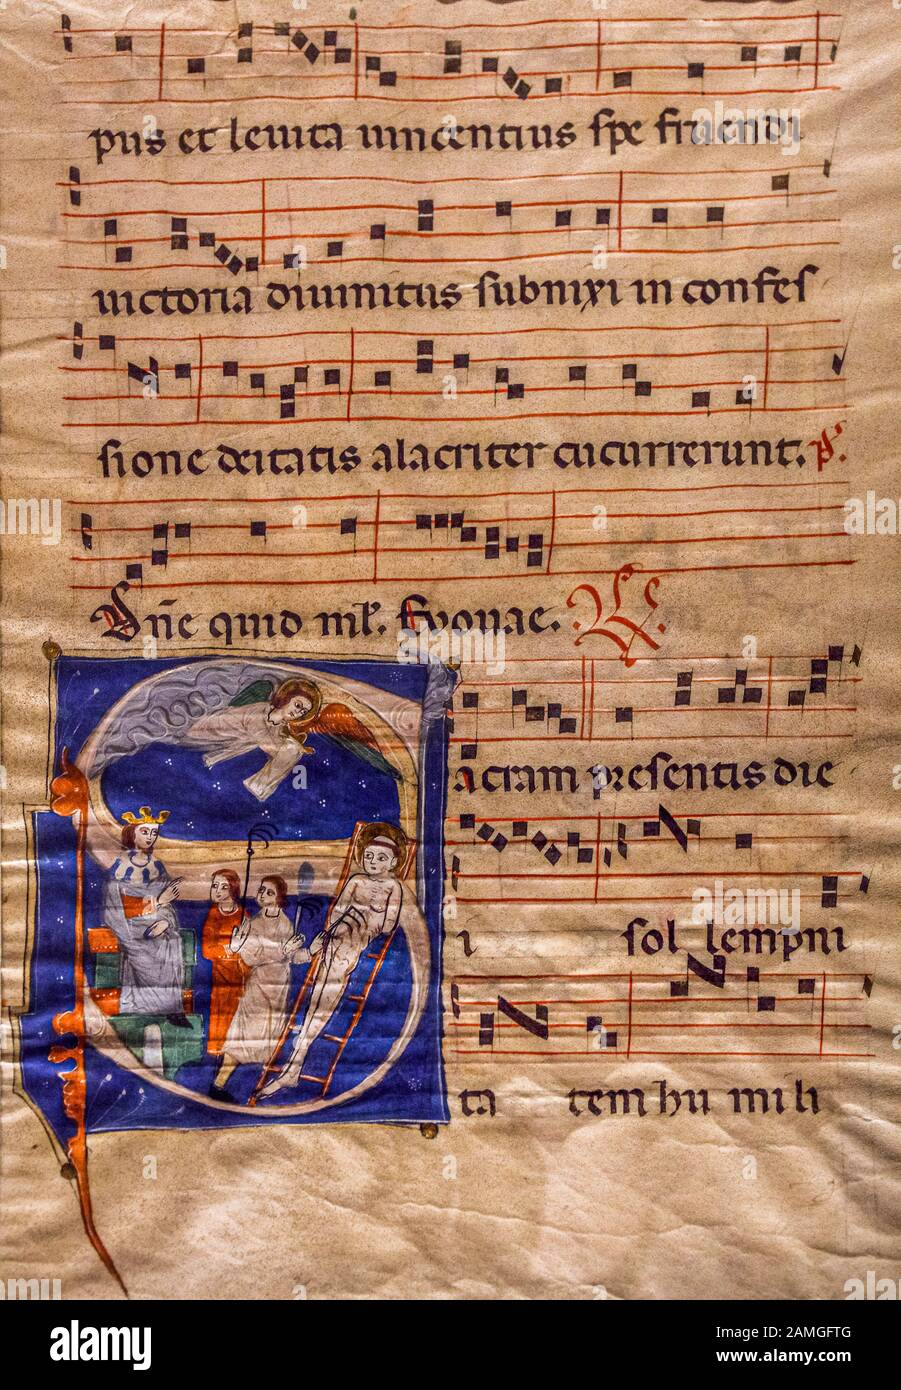 pus et levita vincentius spe fruendi
victoria divinitus subnixi in confes
sione deitatis alacriter cucurrerunt. ps.
Dñe quid ml̃. Evovae. R.
Sacram presentis die
i sol lempni
ta tem hu mi li
alamy
Image ID: 2AMGFTG
www.alamy.com